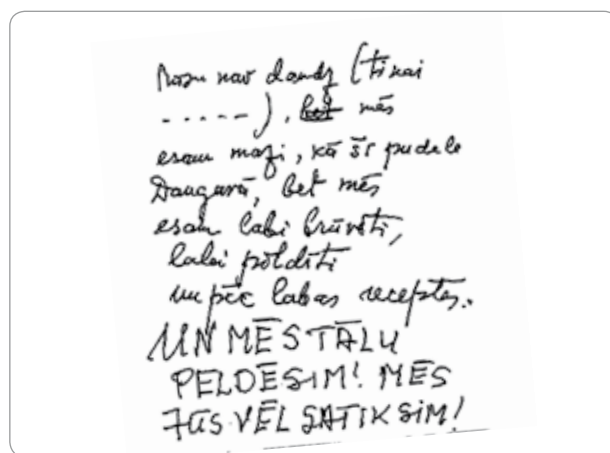 Mūsu nav daudz (tikai
- - - - -), mēs
esam mazi, kā šī pudele
Daugavā, bet mēs
esam labi brūvēti,
labi pildīti
un pēc labas receptes.
UN MĒS TĀLU
PELDĒSIM! MĒS
JŪS VĒL SATIKSIM!